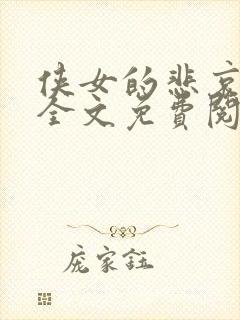 侠女的悲哀
全文免费阅
庞家钰